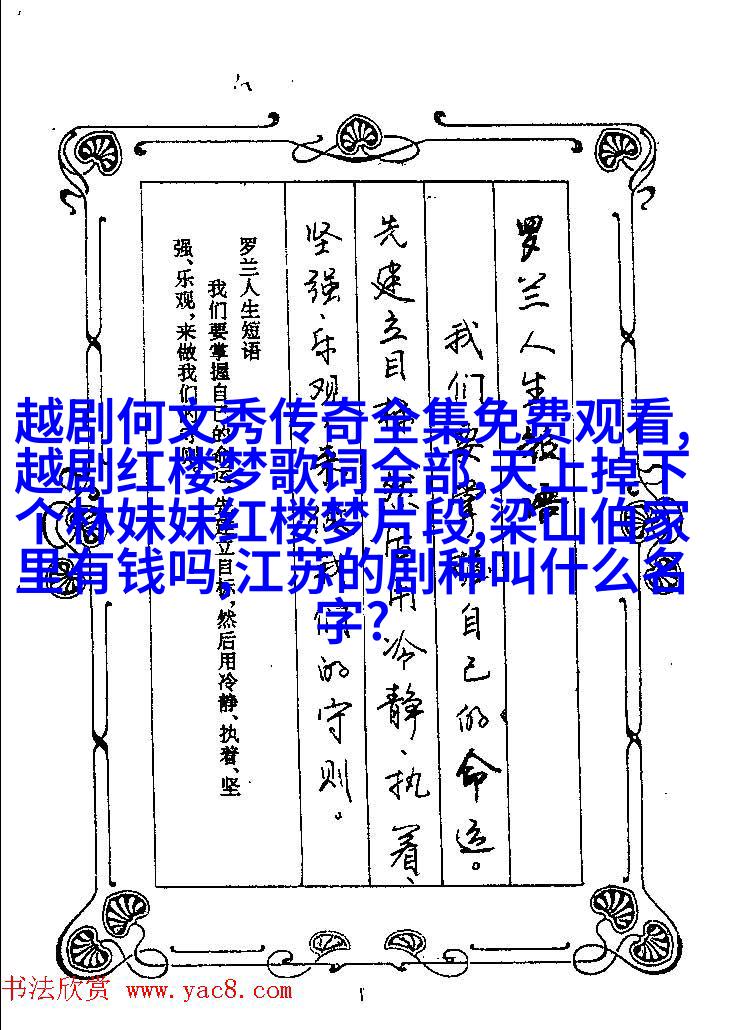 罗兰人生短语
我们要掌握自己的命运。
先建立目标,然后用冷静、执着、
坚强、乐观,来做我们的守则。
罗兰人生短语
我们要掌握自己的命运。先建立目标,然后用冷静、执着、坚
强、乐观,来做我们的守则
越剧何文秀传奇全集免费观看,
越剧红楼梦歌词全部,天上掉下
个林妹妹红楼梦片段,梁山伯家
里有钱吗,江苏的剧种叫什么名
字?
书法欣赏 www.yac8.com
1